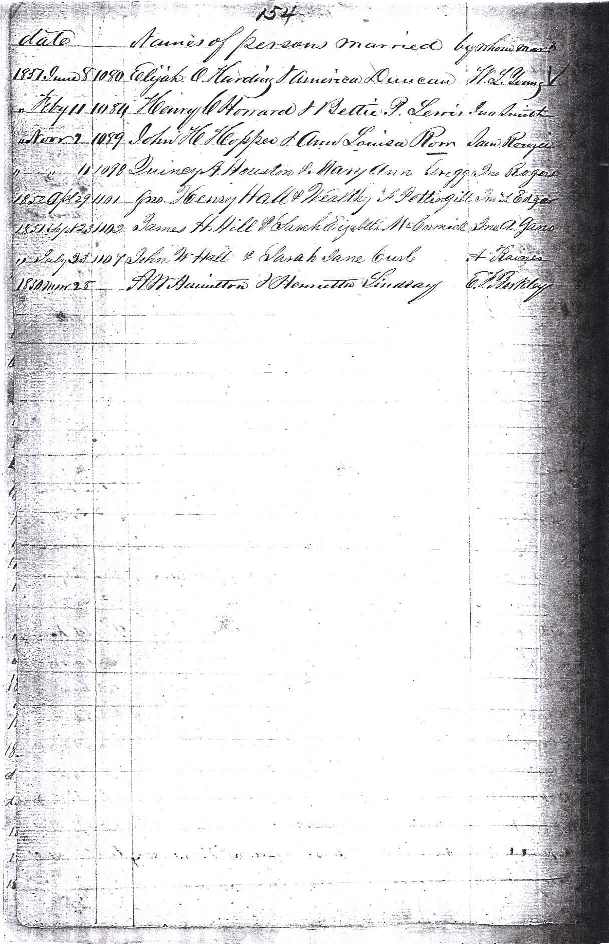 154
date Names of persons married by whom mard
1851 June 8 1080 Elijah O. Harding & America Duncan W. L. Young
" Feby 11 1084 Henry C Howard & Bettie P. Lewis Jno
" Novr 9 1089 John H Hopper & Ann Louisa Rom Sam
" " 11 1098 Quincy A Houston & Mary Ann Gregg Jno Rogers
1852 Apl 29 1101 Geo. Henry Hall & Jno T. Edgar
1851 Sept 23 1102 James H. Hill & Sarah Elizabeth McCormick Jno A.
" July 23 1107 John W Hall & Sarah Jane Curl
1850 Nov 28 A W Hamilton & Henrietta Lindsay